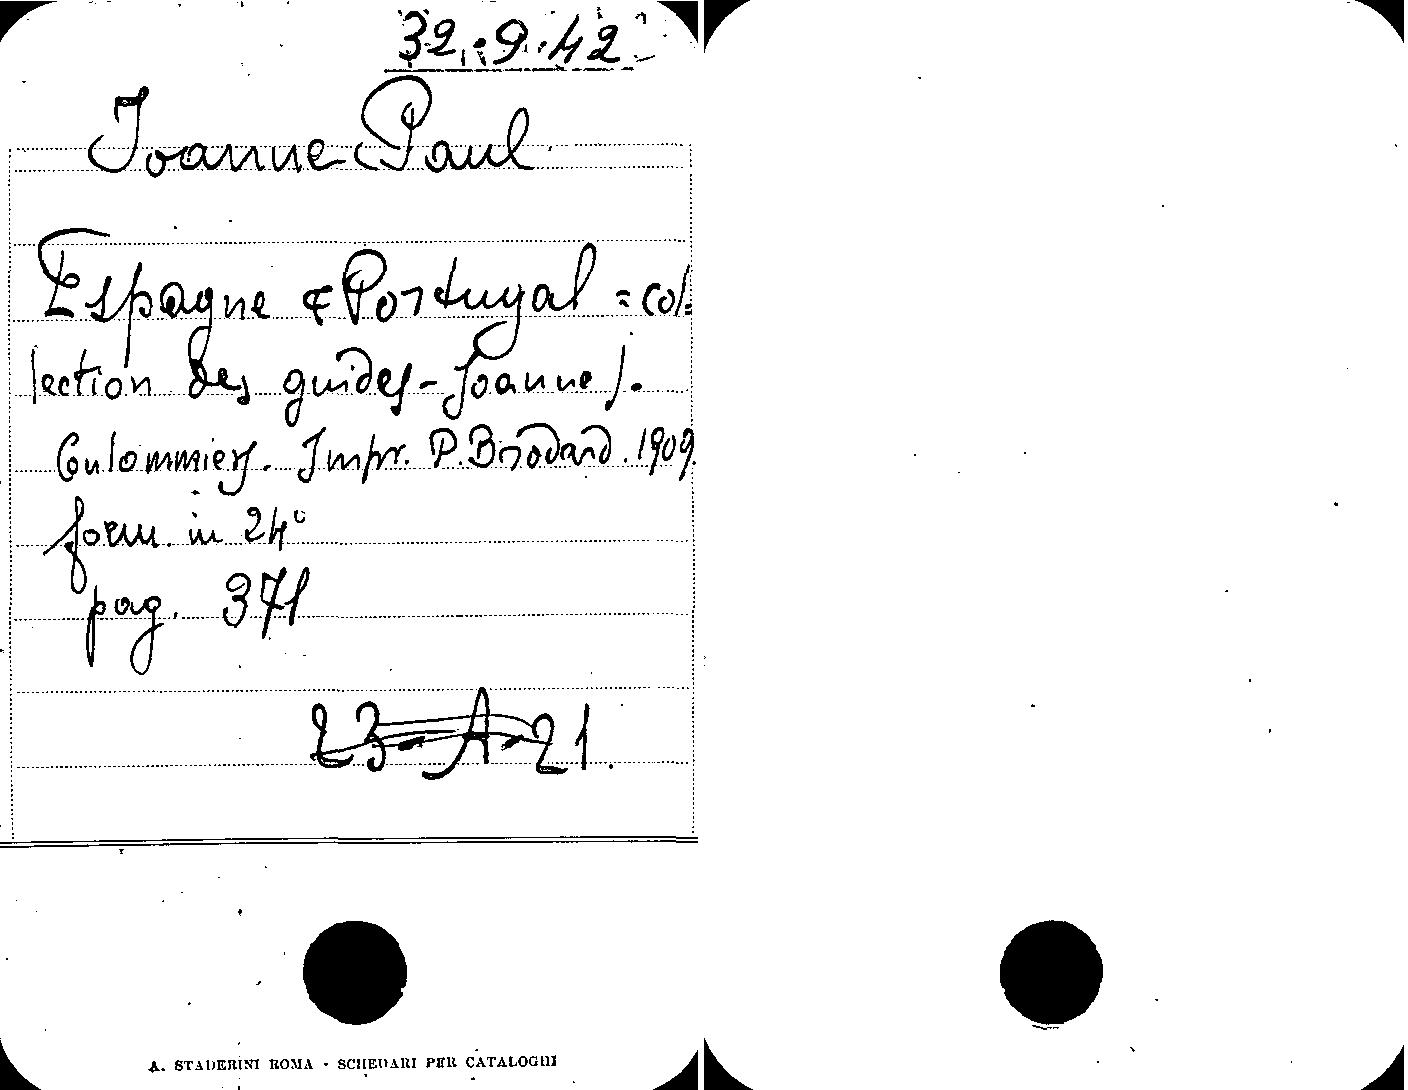 32.9.42
Joanne Paul
Espagne & Portugal = (Col=
lection des guides-Joanne).
Coulommiers. Impr. P. Brodard. 1909.
form. in 24°
pag. 371
23-A-21.
A. STADERINI ROMA - SCHEDARI PER CATALOGHI